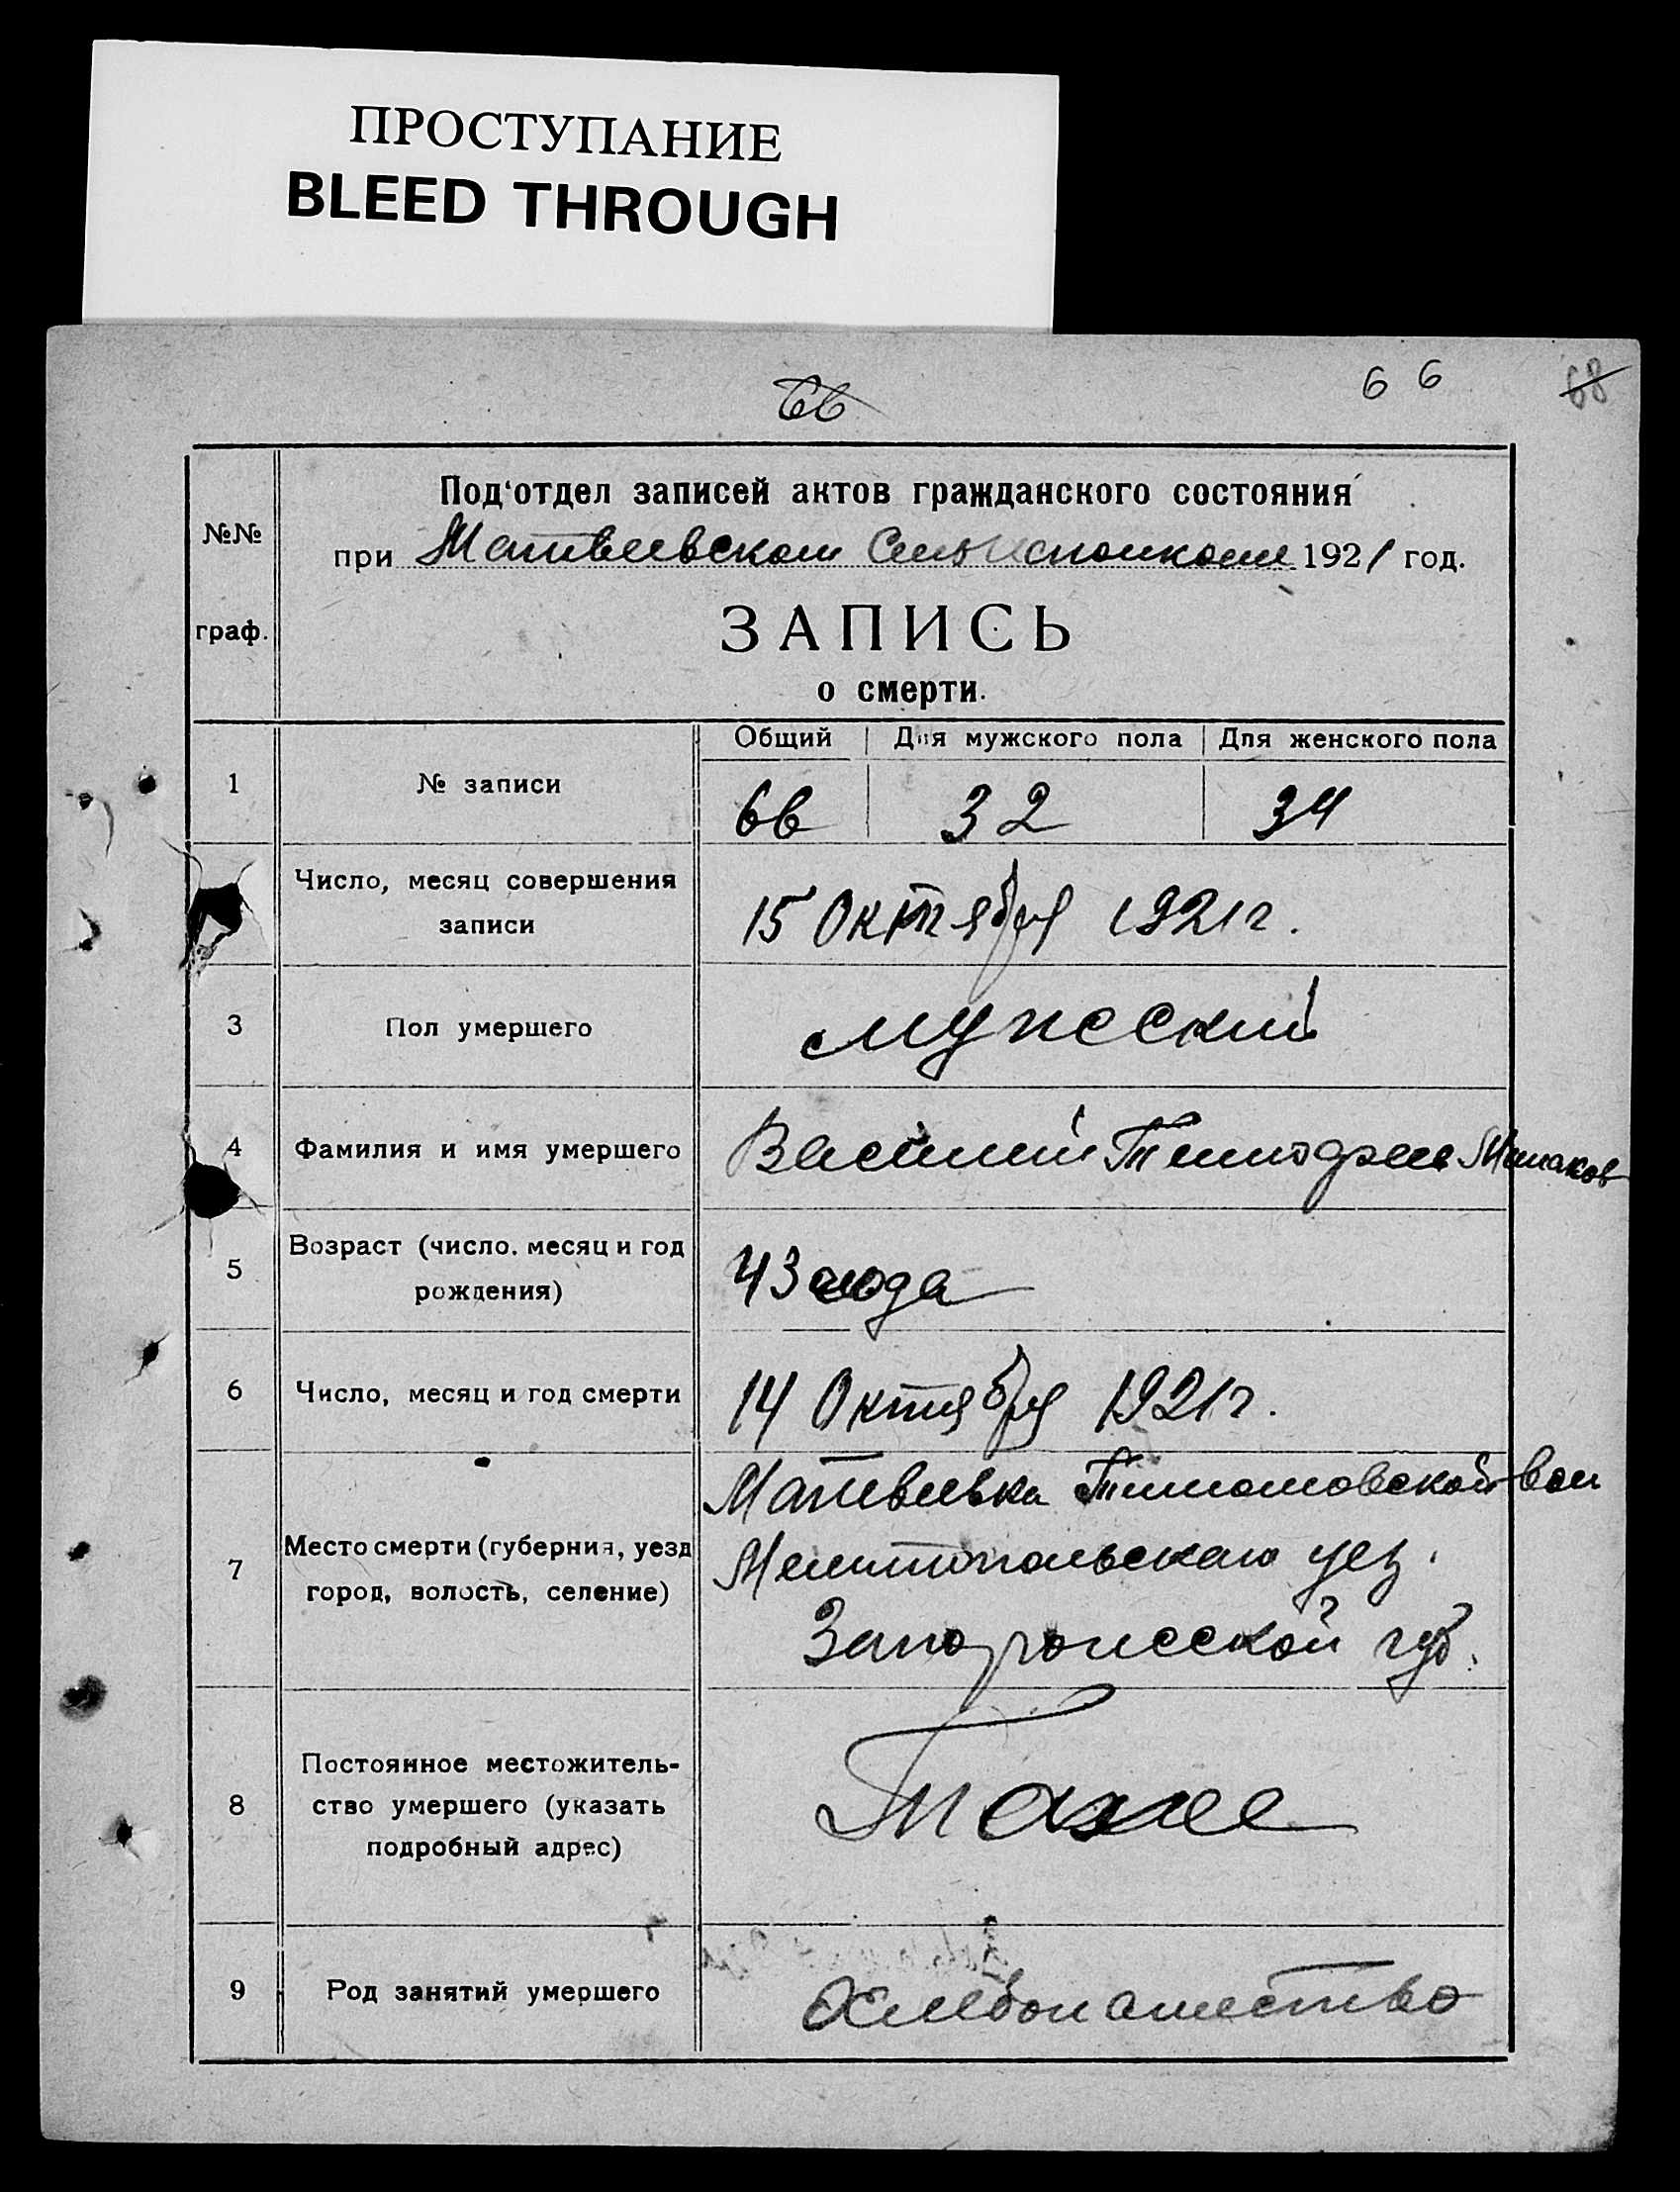 ПРОСТУПАНИЕ
BLEED THROUGH
66 6 6 68
№№ граф.
Под'отдел записей актов гражданского состояния
при Матвеевском Сельисполкоме 1921 год.
ЗАПИСЬ
о смерти.
Общий Для мужского пола Для женского пола
1 № записи 66 32 34
Число, месяц совершения
записи 15 Октября 1921 г.
3 Пол умершего мужеский
4 Фамилия и имя умершего Василий Тимофеев Минаков
5 Возраст (число, месяц и год
рождения) 43 года
6 Число, месяц и год смерти 14 Октября 1921 г.
7 Место смерти (губерния, уезд
город, волость, селение)
Матвеевка Тимошовской вол
Мелитопольскаго уез.
Запорожеской губ.
8 Постоянное местожитель-
ство умершего (указать
подробный адрес) Тоже
9 Род занятий умершего Хлебопашество